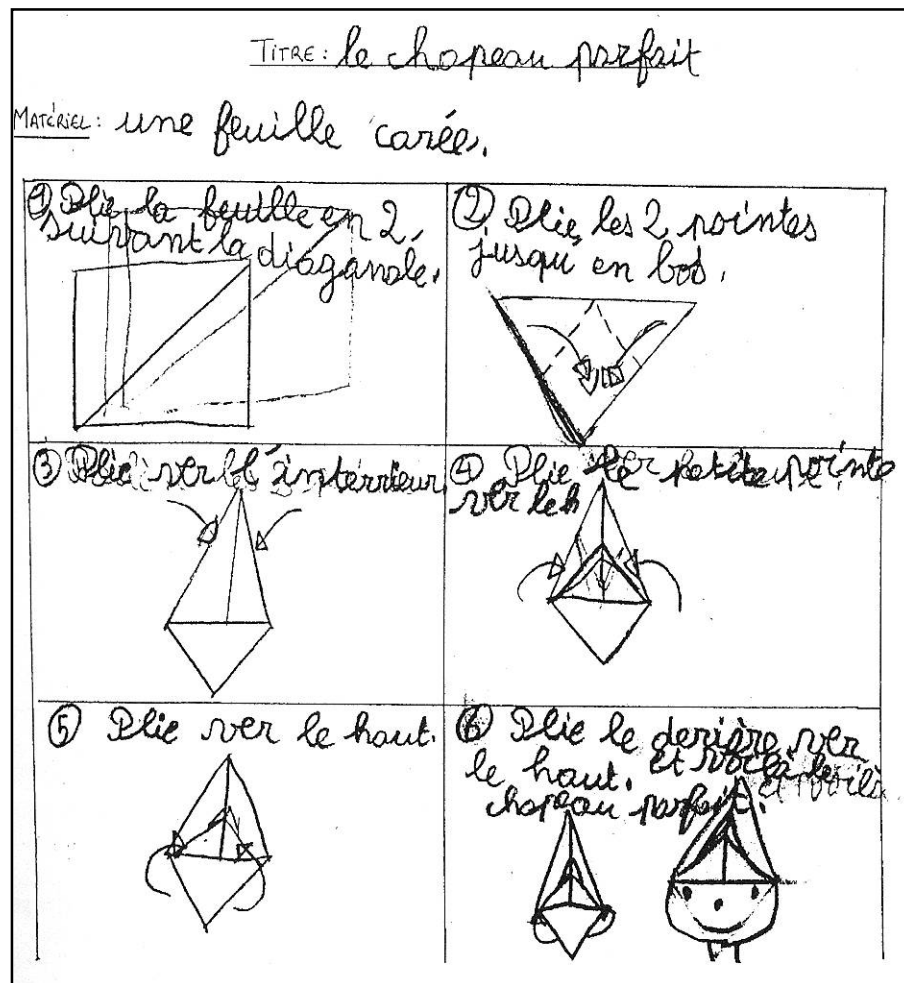 TITRE: le chapeau parfait
MATÉRIEL: une feuille carée.
① Plie la feuille en 2,
suivant la diaganale.
② Plie les 2 pointes
jusqu'en bas.
③ Plie ver l'intérrieur
④ Plie petite pointe
ver le h
⑤ Plie ver le haut.
⑥ Plie le derière ver
le haut. et voilà le
chapeau parfait.